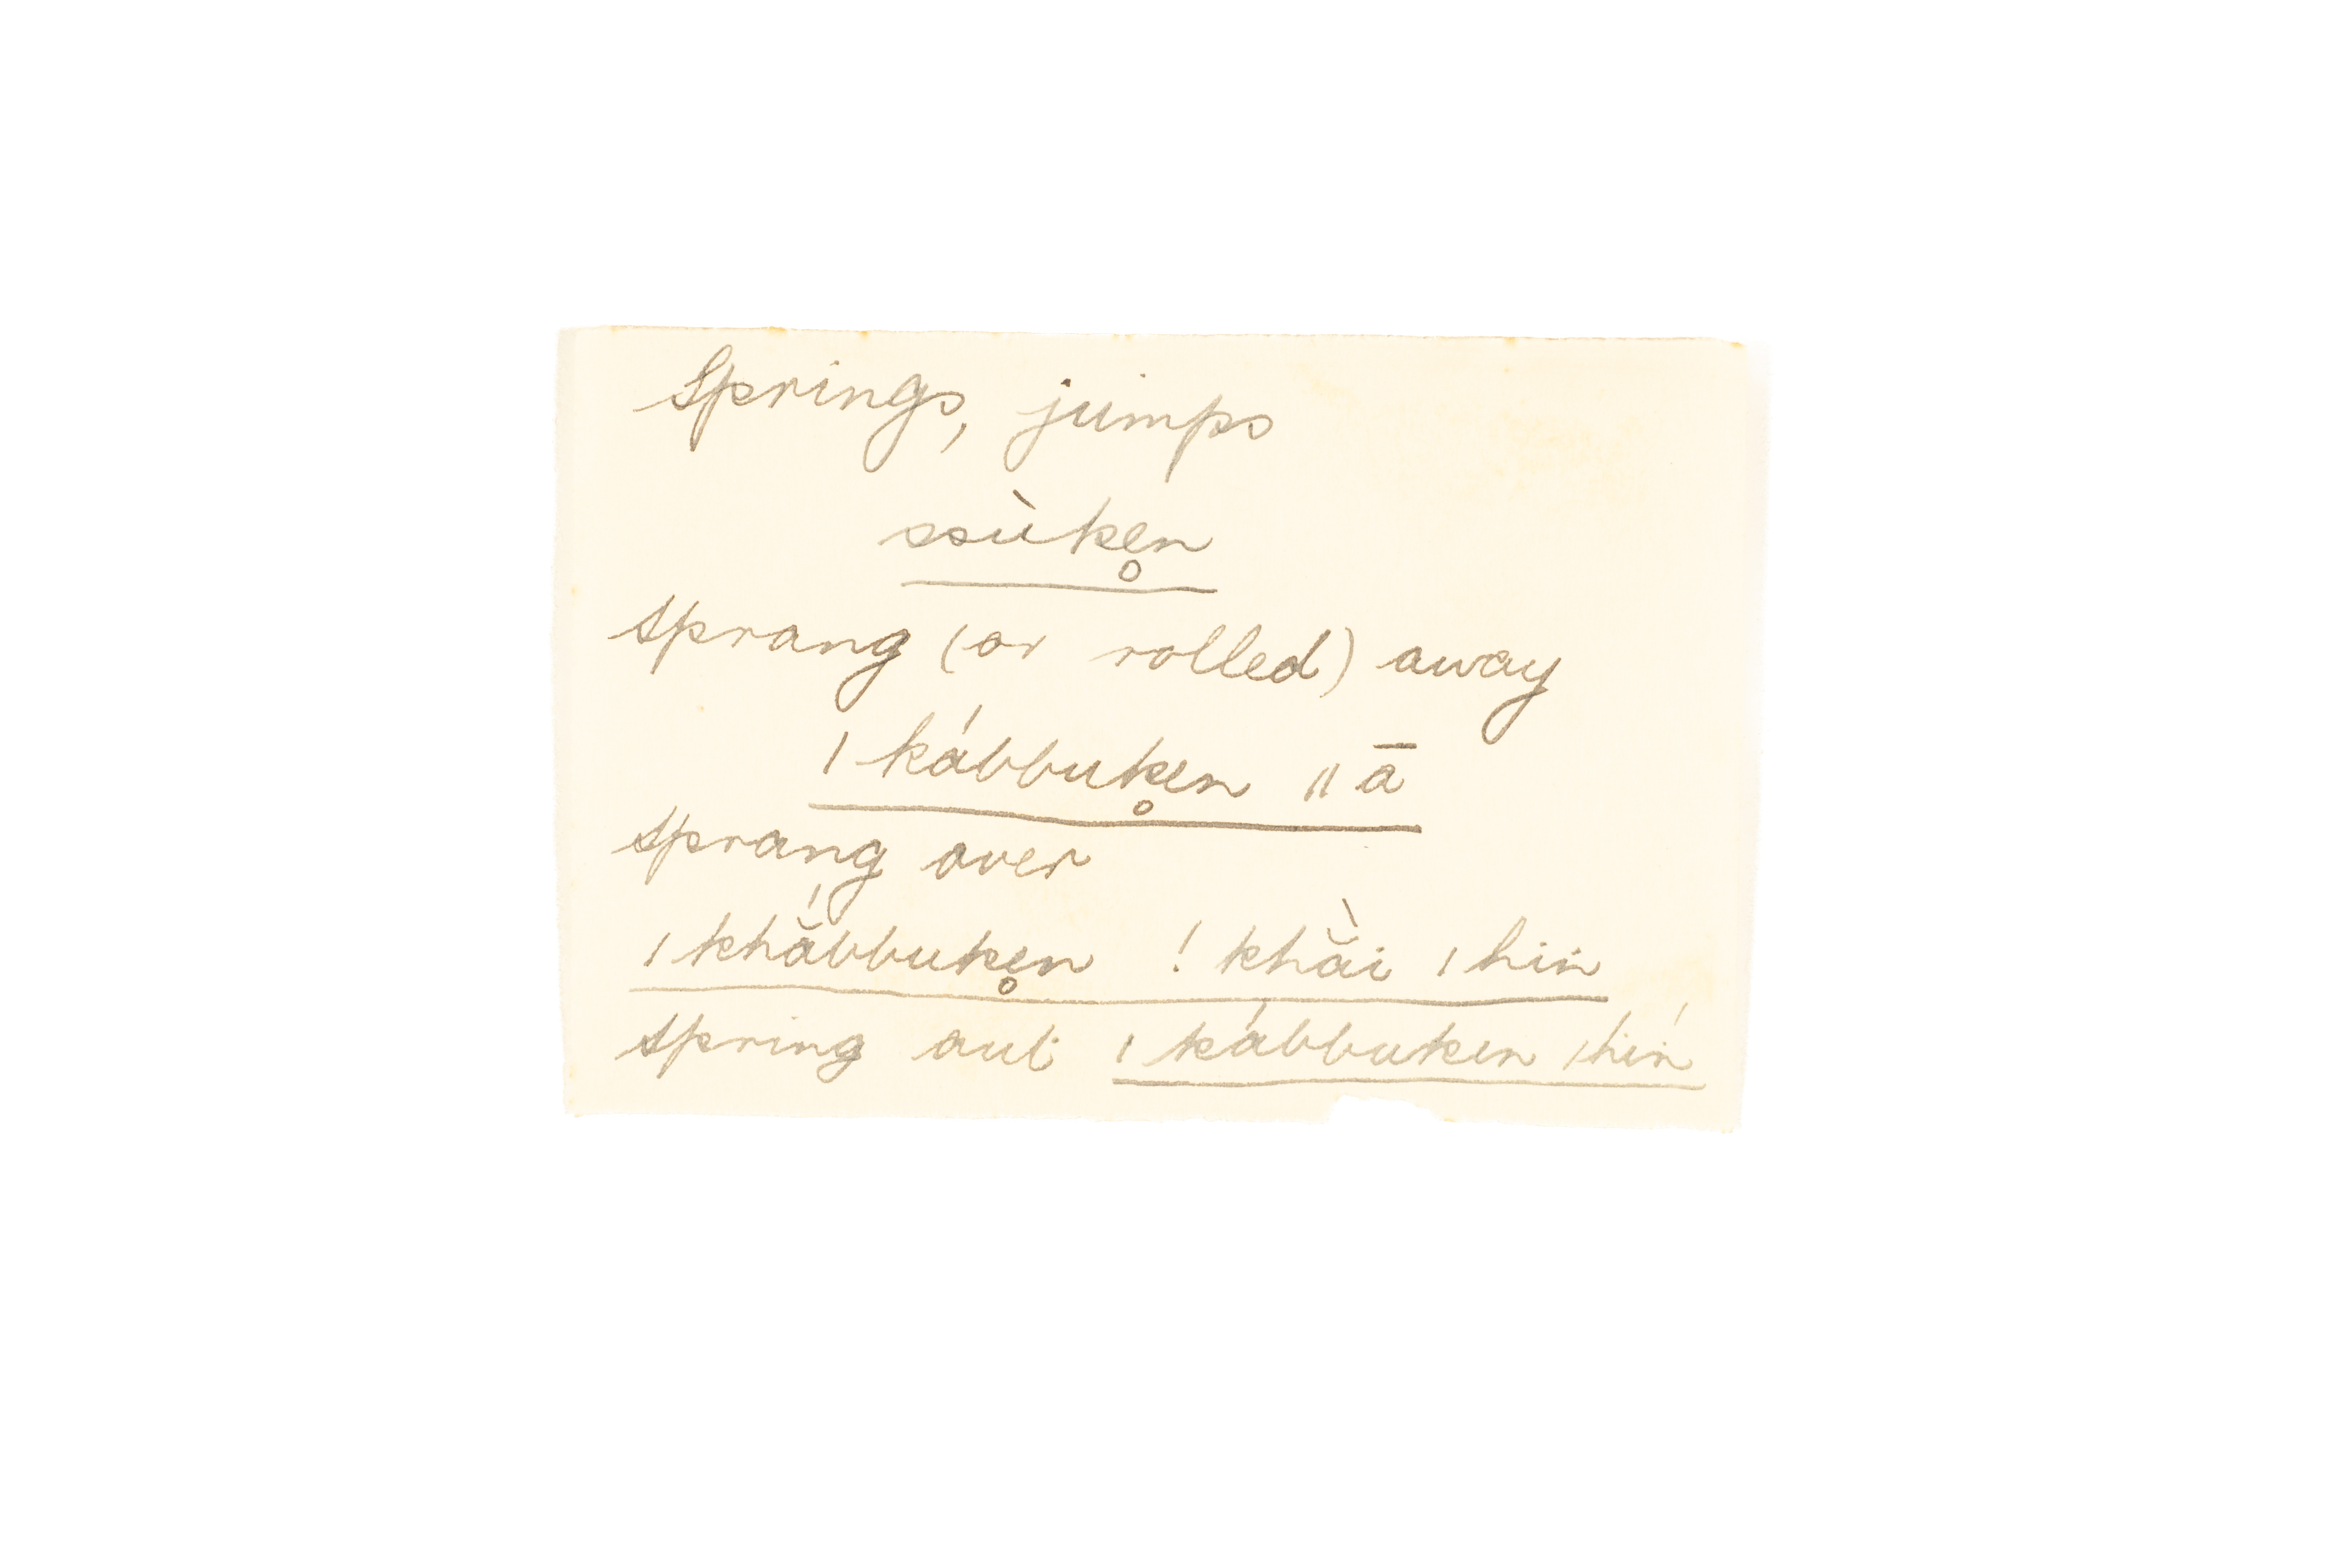 Springs, jumps
ssùke̥n
sprang (or rolled) away
ǀkábbuke̥n ǁā
sprang over
ǀkhắbbuke̥n !khằi ǀhin
spring out ǀkábbuken ǀhín